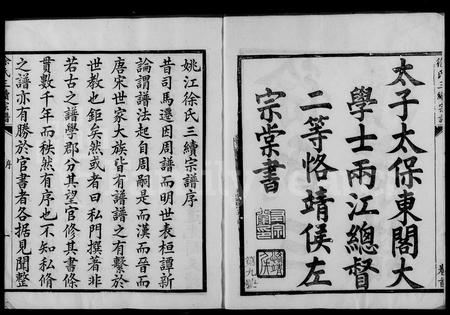 太子太保東閣大
學士兩江總督
二等恪靖侯左
宗棠書
姚江徐氏三續宗譜序
昔司馬遷因周譜而明世表桓譚新
論謂譜法起自周嗣是而漢而晉而
唐宋世家大族皆有譜譜之有繫於
世教也鉅矣然或者曰私門撰著非
若古之譜學郡分其望官修其書條
貫數千年而秩然有序也不知私脩
之譜亦有勝於官書者各據見聞整
序